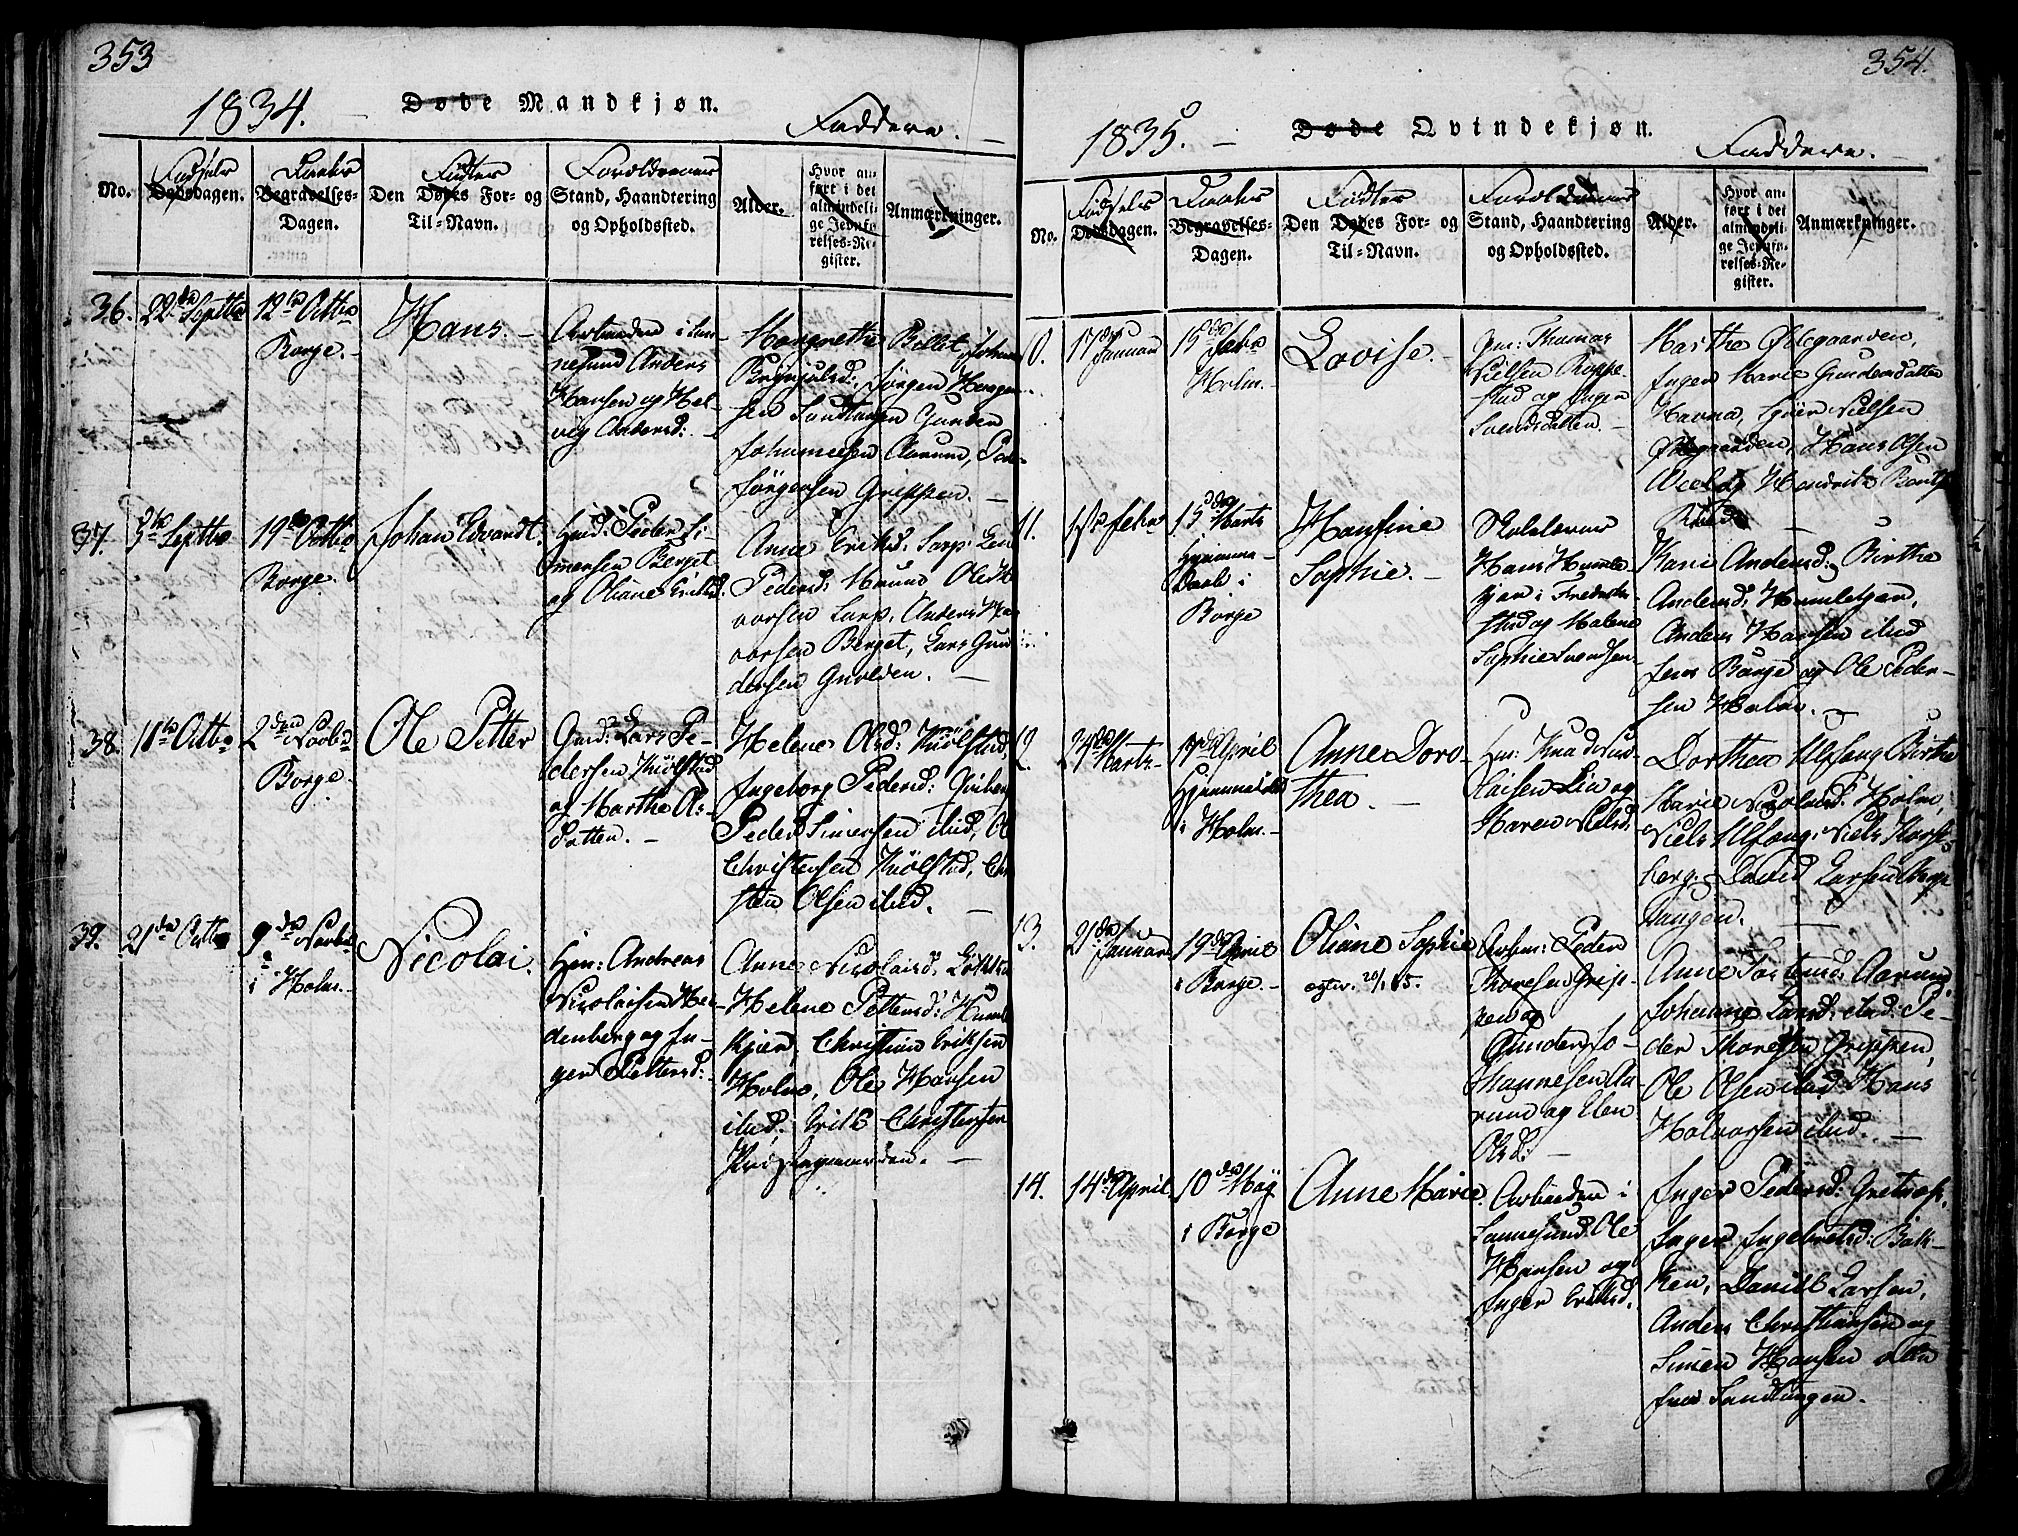 353
1834. Døde Mandkjøn. Faddere.
No.
Fødsels
Dødsdagen.
Daabs
Begravelses-
Dagen.
Fødtes
Den Dødes For- og
Til-Navn.
Forældrenes
Stand, Haandtering
og Opholdssted.
Alder.
Hvor an-
ført i det
almindeli-
ge Jevnfø-
relses-Re-
gister.
Anmærkninger.
36. 22de Septbr
12te Octbr
Borge.
Hans.
Arbeider i San-
nesund Anders
Hansen og Hel-
vig Andersd:
Margrethe Johanne
Brynjulsd: Jørgen Haagen-
sen Sandtangen Gunder
Johannesen Aarum, Peder
Jørgensen Grippen.
37. 5te Septbr
19de Octbr
Borge.
Johan Edvardt.
Gmd: Peder Si-
mensen Berget
og Oliane Eriksd.
Anne Eriksd: Sarp.
Pedersd: Ole
Sarp. Anders
Berget, Lars Gun-
dersen Gulden.
38. 11te Octbr
2den Novbr
Borge.
Ole Petter
Gmd: Lars Pe-
dersen Kiølstad
og Marthe
Datter.
Helene Olsd: Kiølstad,
Ingeborg Pedersd:
Peder Simensen ibid,
Christensen Kiølstad,
sten Olsen ibid.
39. 21de Octbr
9de Novbr
i Holm.
Nicolai.
Hm: Andreas
Nicolaisen Hei-
denberg og In-
ger Pettersd:
Anne Nicolaisd:
Helene Pettersd: Humle-
kjær, Christian Eriksen
Holm, Ole Hansen
ibid. Erik Christensen
Præstegaarden.
354.
1835. Døde Qvindekjøn. Faddere.
No.
Fødsels
Dødsdagen.
Daabs
Begravelses-
Dagen.
Fødtes
Den Dødes For- og
Til-Navn.
Forældrenes
Stand, Haandtering
og Opholdssted.
Alder.
Hvor an-
ført i det
almindeli-
ge Jevnfø-
relses-Re-
gister.
Anmærkninger.
10. 17de Januar
15de Febr
Holm.
Lovise.
Gm: Thomas
Nielsen Roppe-
stad og Inger
Svendsdatter.
Marthe Ødegaarden,
Inger Marie Gundersdatter
Nielsen
Hans Olsen
11. 1ste Febr
15de Marts
Hjemme-
daab i
Borge
Hansine
Sophie.
Skolelærer
Hans Humle-
kjær i Frederik-
stad og Malene
Sophie Svendsen
Marie Andersd: Birthe
Andersd: Humlekjær,
Anders Hansen ibid
Borge og Ole Peder-
sen Holm.
12. 24de Marts
April
Hjemmedøbt
i Holm.
Anne Doro-
thea.
Hm: Knud
Lie og
Maren Nielsd:
Dorthea Ulfeng Birthe
Marie Nicolaisd: Holm,
Niels Ulfeng, Niels
berg, David Larsen
Tangen.
13. 21de Januar
19de April
i Borge.
Oliane Sophie
Arbm: Peder
Thoresen Grip-
pen og
Gunder Jo-
hannesen Aa-
rum og Elen
Olsd:
Anne Aarum,
Johanne Larsd: ibid: Pe-
der Thoresen Grippen,
Ole Olsen ibid Hans
Halvorsen ibid.
14. 14de April
10de Maj
i Borge
Anne Marie
Arbeider i
Sannesund Ole
Hansen og
Inger Eriksd.
Inger Pedersd:
Inger Ingebretsd: Bak-
ken, Daniel Larsen,
Anders Christiansen og
Simen Hansen alle
fra Sandtangen.